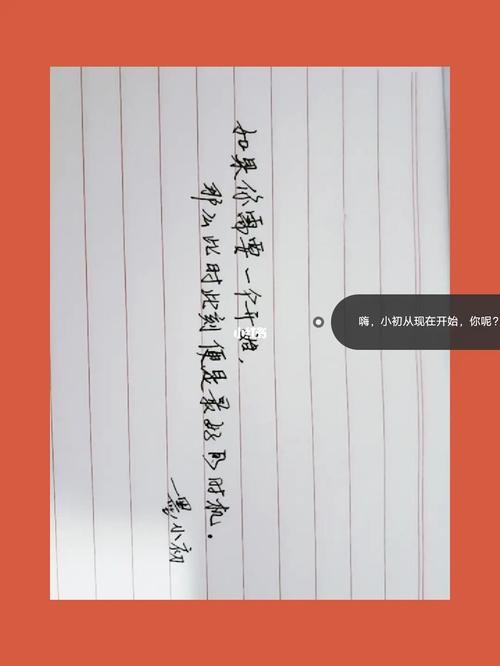 如果你需要一个开始，
那么此时此刻便是最好的时机。
一墨小初
小红书
嗨，小初从现在开始，你呢？